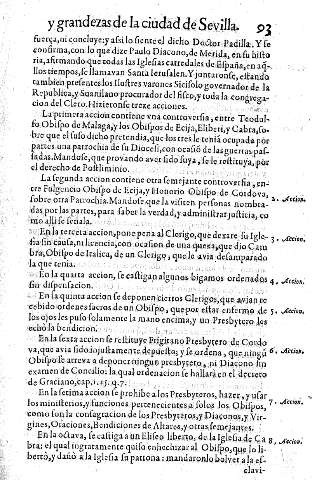 y grandezas de la ciudad de Sevilla. 93
fuerça, ni concluye: y assi lo siente el dicho Doctor Padilla. Y se
confirma, con lo que dize Paulo Diacono, de Merida, en su histo
ria, afirmando que todas las Iglesias catredales de España, en aq̃-
llos tiempos, se llamavan Santa Ierusalen. Y juntaronse, estando
tambien presentes los Ilustres varones Sisisolo governador de la
Republica, y Suanilano procurador del fisco, y toda la congrega-
cion del Clero. Hizieronse treze acciones.
La primera accion contiene vna controversia, entre Teodul-
fo Obispo de Malaga, y los Obispos de Ecija, Eliberi, y Cabra, so-
bre que el susodicho pretendia, que los tres le tenia ocupada por
partes una parrochia de su Diocesi, con ocasiõ de las guerras pas-
sadas. Mandose, que provando aver sido suya, se le restituya, por
el derecho de Postliminio.
La segunda accion contiene otra semejante controversia, en-
tre Fulgencio Obispo de Ecija, y Honorio Obispo de Cordova, 2. Accion.
sobre otra Parrochia. Mandose que la visiten personas nombra-
das por las partes, para saber la verdad, y administrar justicia, co
mo alli se señala.
En la tercera accion, pone pena al Clerigo, que dexare su Igle-
sia sin causa, ni licencia, con ocasion de una quexa, que dio Cam 3. Accion.
bra, Obispo de Italica, de un Clerigo, que le avia desamparado
la que tenia.
En la quarta accion, se castigan algunos bigamos ordenados 4. Accion.
sin dispensacion.
En la quinta accion se deponen ciertos Clerigos, que avian re-
cebido ordenes sacros de un Obispo, que por estar enfermo de 5. Accion.
los ojos les puso solamente la mano encima, y un Presbytero les
echò la bendicion.
En la sexta accion se restituye Frigitano Presbytero de Cordo
va, que avia sido injustamente depuesto; y se ordena, que ningũ 6. Accion.
Obispo se atreva a deponer ningun presbytero, ni Diacono sin
examen de Concilio: la qual ordenacion se hallarà en el decreto
de Graciano, cap. 1. 15. q. 7.
En la setima accion se prohibe a los Presbyteros, hazer, y usar
los ministerios, y funciones pertenecientes a solos los Obispos, 7. Accion.
como son la consagracion de los Presbyteros, y Diaconos, y Vir-
gines, Oraciones, Bendiciones de Altares, y otras semejantes.
En la octava, se castiga a un Eliseo liberto, de la Iglesia de Ca 8. Accion.
bra: el qual ingratamente quiso enhechizar al Obispo, que lo li-
bertò, y dañò a la Iglesia su patrona: mandaronlo bolver a la es-
clavi-